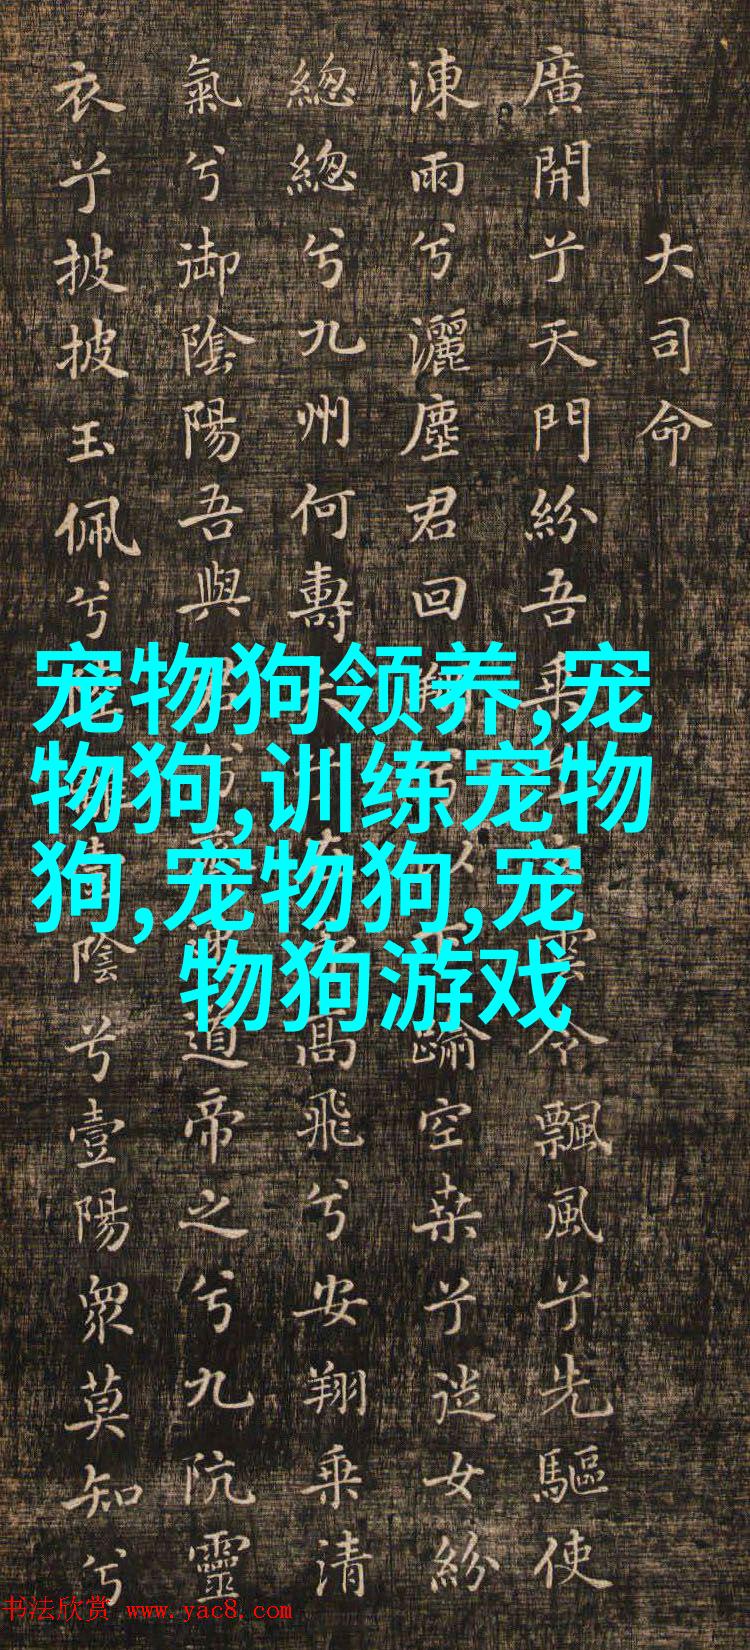 大司命
廣開兮天門紛吾乘雲令飄風兮先驅使
涷雨兮灑塵君回以下踰空桒兮從女紛
緫緫兮九州何壽高飛兮安翔乘清
氣兮御陰陽吾與道帝之兮九阬靈
衣兮披披玉佩兮陰兮壹陽眾莫知兮
宠物狗领养,宠
物狗,训练宠物
狗,宠物狗,宠
物狗游戏
书法欣赏 www.yac8.com